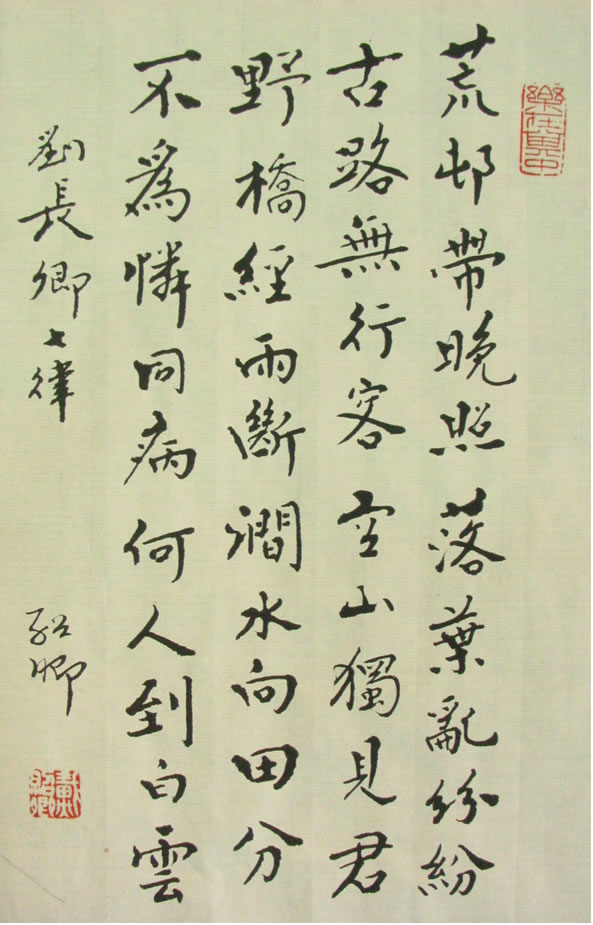 樂在其中
荒邨帶晚照落葉亂紛紛
古路無行客空山獨見君
野橋經雨斷澗水向田分
不爲憐同病何人到白雲
劉長卿七律
紹卿
戴紹卿